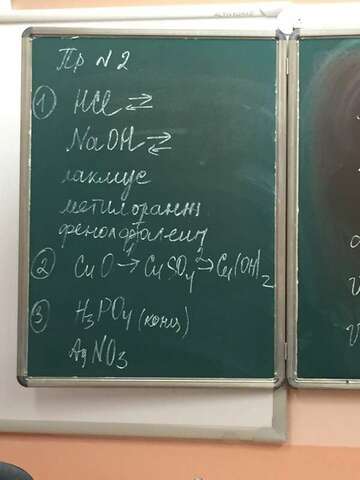 Пр N 2
① HCl ⇄
NaOH ⇄
лакмус
метилоранж
фенолфталеин
② CuO →¹ CuSO₄ →² Cu(OH)₂
③ H₃PO₄ (конц)
AgNO₃